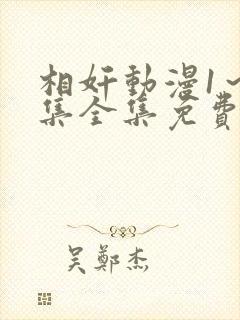 相奸動漫1~
集全集免費
吳鄭杰